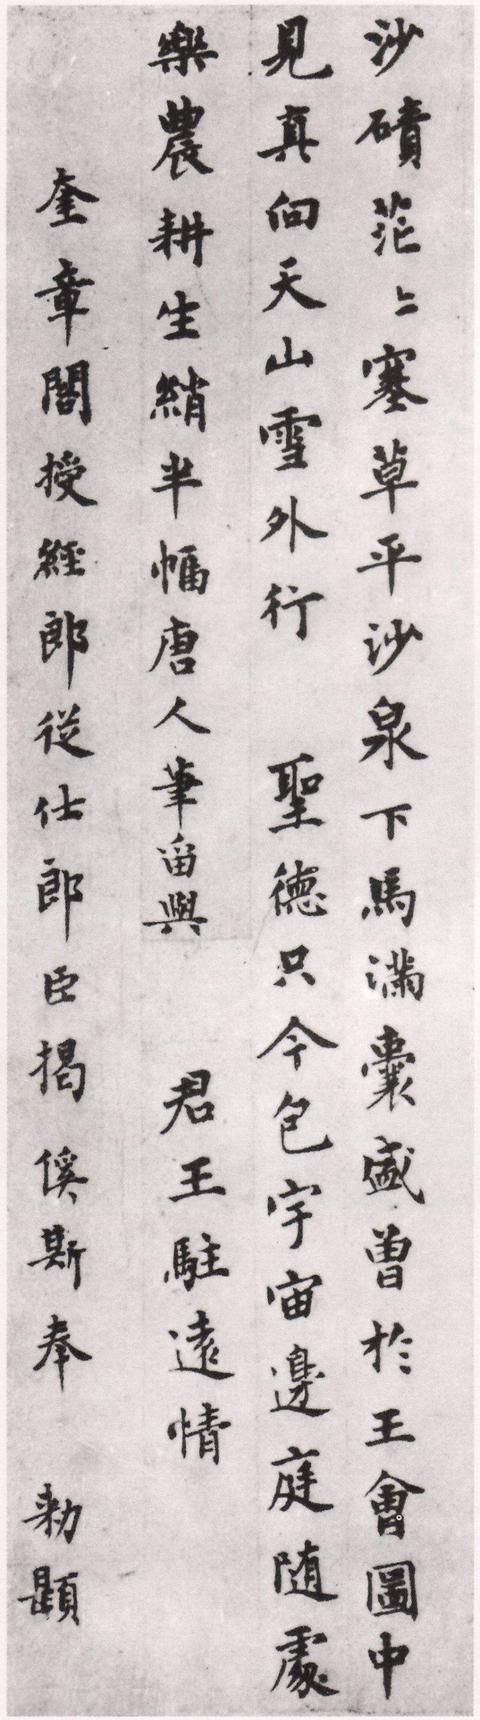 沙磧茫〻塞草平沙泉下馬滿囊盛曾於王會圖中
見真向天山雪外行　聖德只今包宇宙邊庭隨處
樂農耕生綃半幅唐人筆留與　君王駐遠情
奎章閣授經郎從仕郎臣揭傒斯奉　勑題